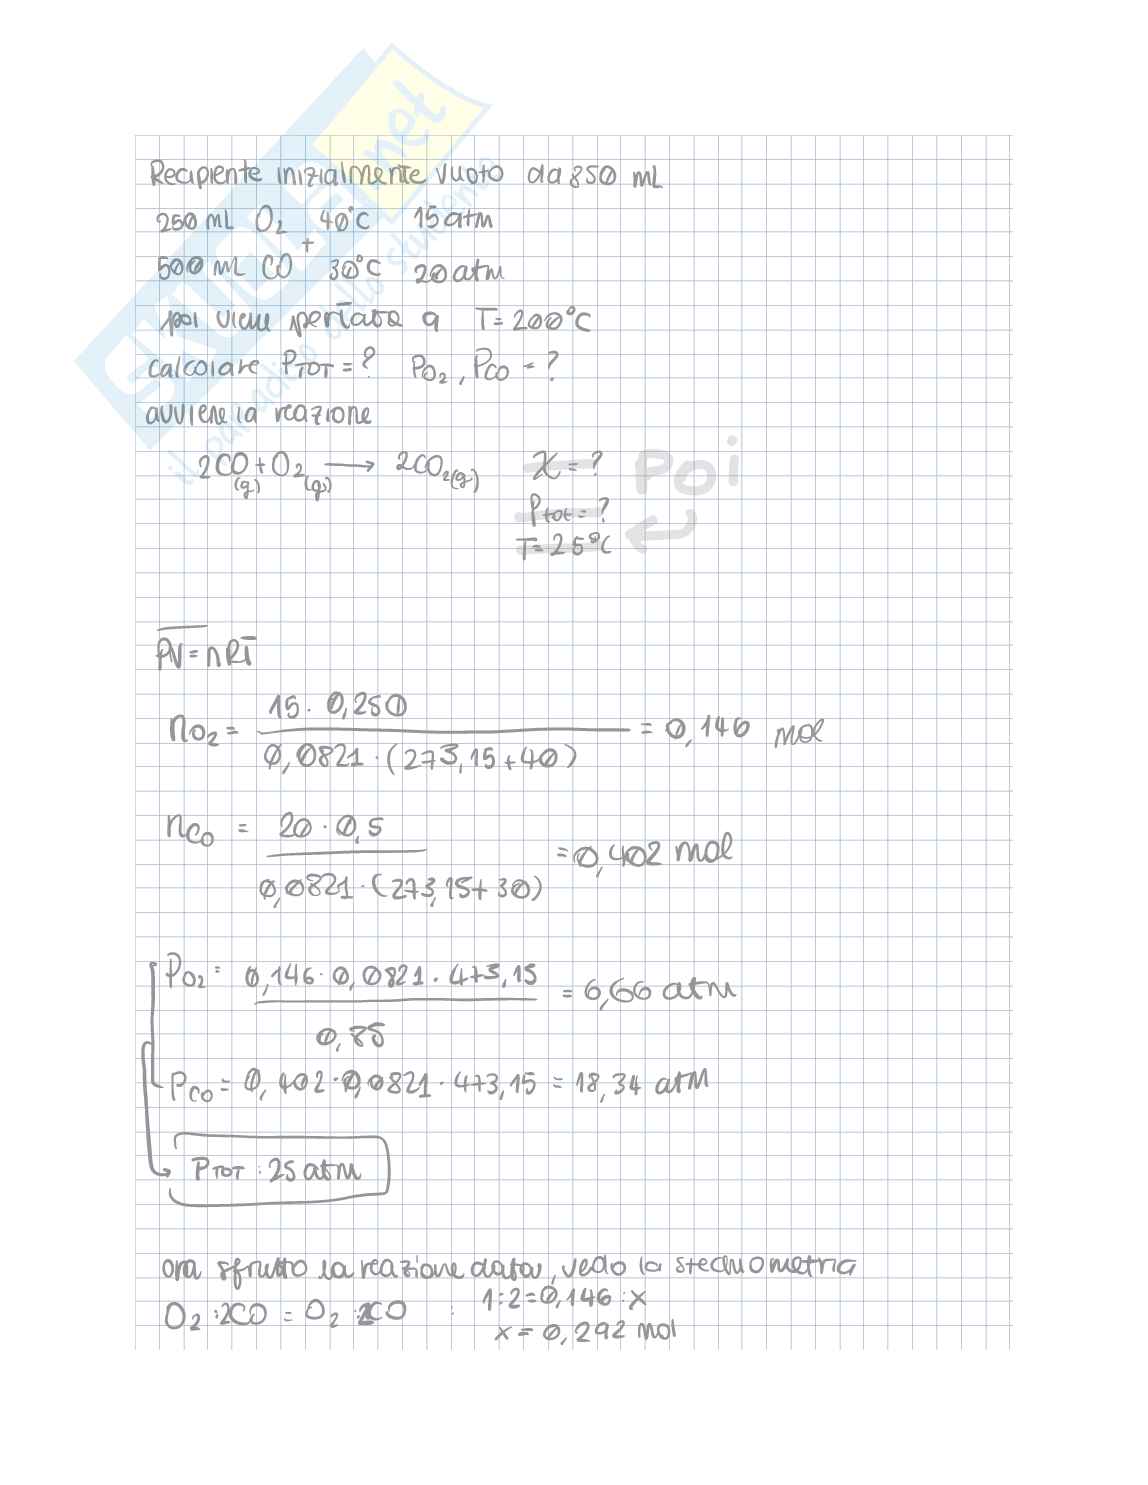 Recipiente inizialmente vuoto da 850 mL
250 mL O2 40°C 15 atm
+
500 mL CO 30°C 20 atm
poi viene portato a T= 200°C
calcolare PTOT = ? PO2, PCO = ?
avviene la reazione
2CO(g) + O2(g) → 2CO2(g) X = ? POI
Ptot = ?
T= 25°C
PV = nRT
nO2 = 15 · 0,250 / 0,0821 · (273,15 + 40) = 0,146 mol
nCO = 20 · 0,5 / 0,0821 · (273,15 + 30) = 0,402 mol
PO2 = 0,146 · 0,0821 · 473,15 / 0,85 = 6,66 atm
PCO = 0,402 · 0,0821 · 473,15 = 18,34 atm
PTOT : 25 atm
ora sfrutto la reazione data, vedo la stechiometria
O2 : 2CO = O2 : 2CO : 1 : 2 = 0,146 : x
x = 0,292 mol
SKUOLA.net
il paradiso dello studente